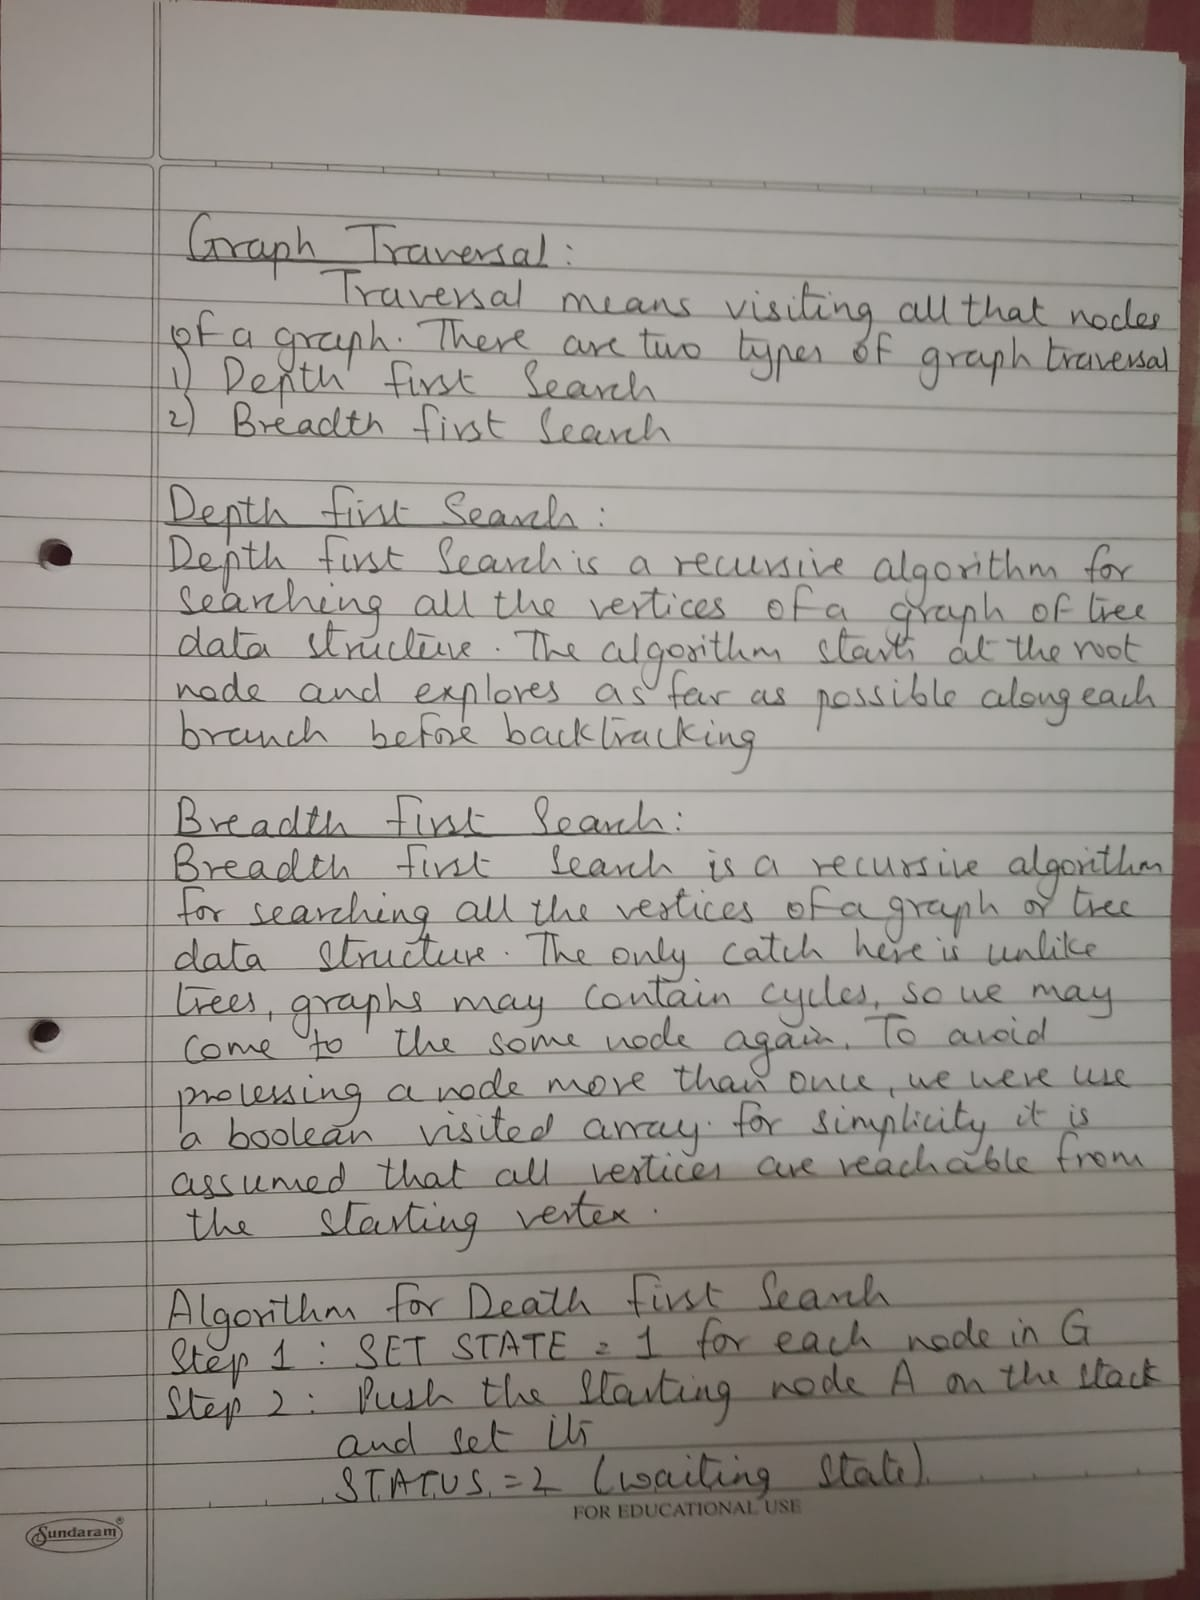 Graph Traversal:
Traversal means visiting all that nodes
of a graph. There are two types of graph traversal
1) Depth first Search
2) Breadth first Search
Depth first Search:
Depth first Search is a recursive algorithm for
searching all the vertices of a graph of tree
data structure. The algorithm starts at the root
node and explores as far as possible along each
branch before backtracking
Breadth first Search:
Breadth first Search is a recursive algorithm
for searching all the vertices of a graph or tree
data structure. The only catch here is unlike
trees, graphs may contain cycles, so we may
come to the some node again. To avoid
processing a node more than once, we were use
a boolean visited array. for simplicity it is
assumed that all vertices are reachable from
the starting vertex.
Algorithm for Death first Search
Step 1: SET STATE = 1 for each node in G
Step 2: Push the Starting node A on the stack
and set its
STATUS = 2 (waiting State).
FOR EDUCATIONAL USE
Sundaram®